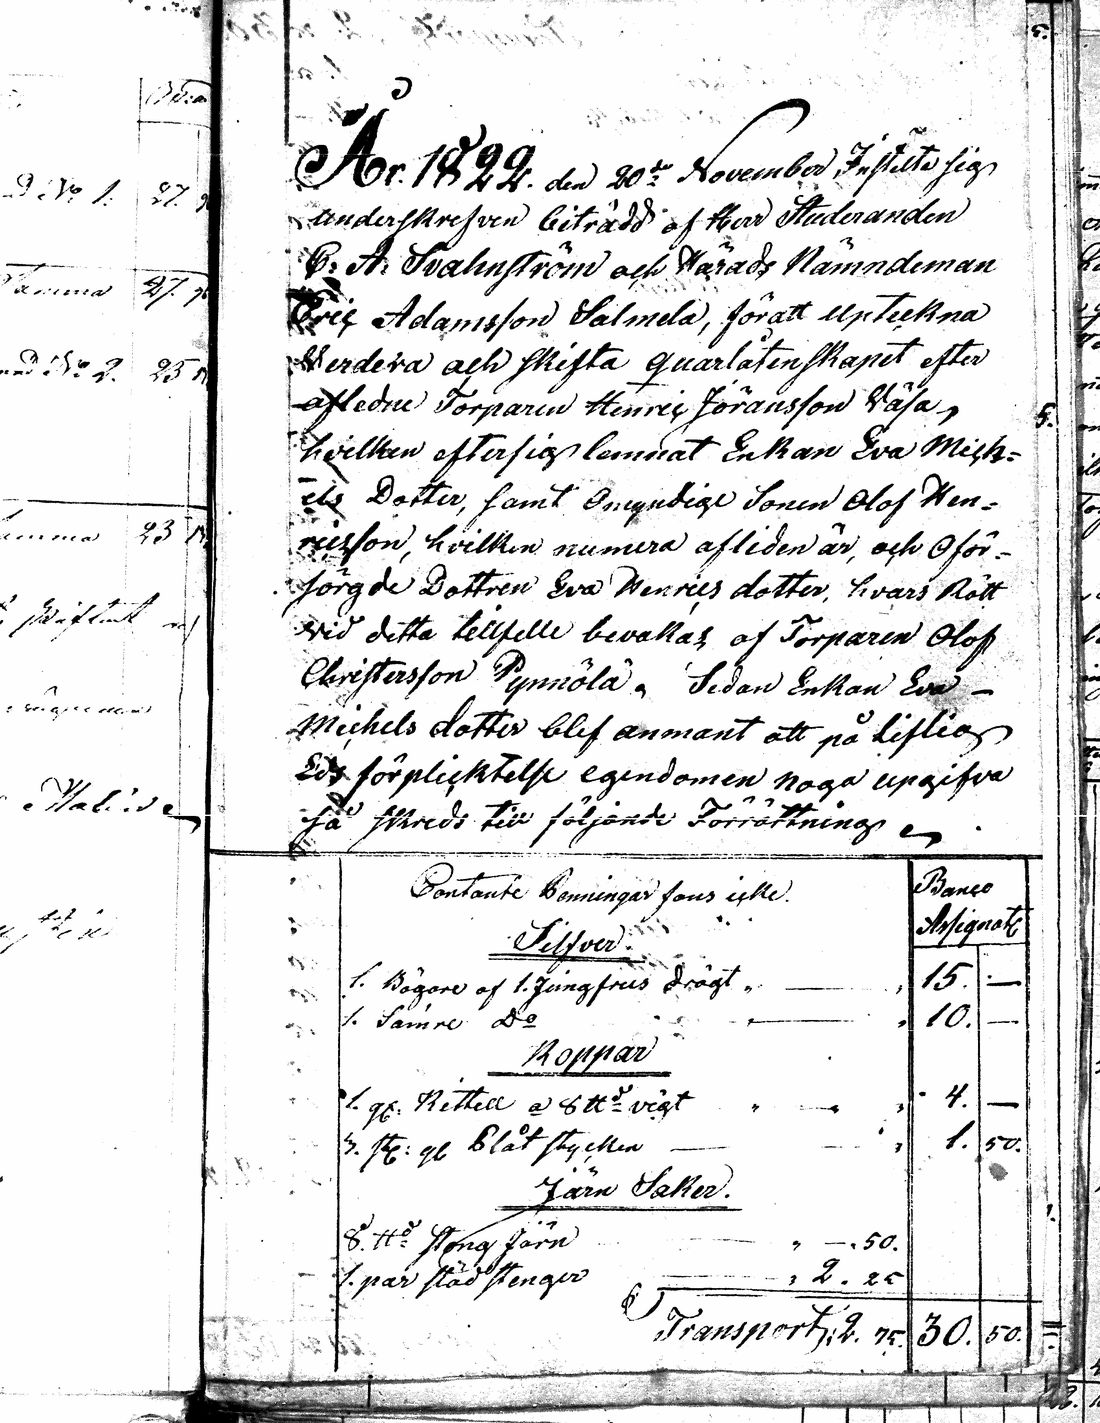 År 1822. den 20de November Instelte sig
underskrefven biträdd af Herr Studeranden
C: A: Svahnström och Härads Nämndeman
Eric Adamsson Salmela, föratt upteckna
Verdera och skifta quarlåtenskapet efter
afledne Torparen Henric Jöransson Väsa,
hvilken eftersig lemnat Enkan Eva Mick=
els Dotter, samt Omyndige Sonen Olof Hen=
ricsson, hvilken numera afliden är, och Oför=
sörgde Dottren Eva Henrics dotter, hvars Rätt
vid detta tillfelle bevakas af Torparen Olof
Christersson Pynnölä, Sedan Enkan Eva
Michels dotter blef anmant att på Liflig
Eds förplicktelse egendomen noga upgifva
så skreds till följande Förrättning
Contante Penningar fans icke.
Banco
Assignate
Silfver.
1. Bägare af 1. Jungfrus drägt 15. —
1. Sämre Do 10. —
Koppar
1. gl: Kittell a 8 ttd vigt 4. —
3. st: gl Plåt stycken 1. 50.
Järn Saker.
8. ttd stong Järn — 50.
1. par städ stenger 2. 25
Transport 2. 75. 30. 50.
D: No 1. 27.
Summa 27.
No 2. 23
Summa 23